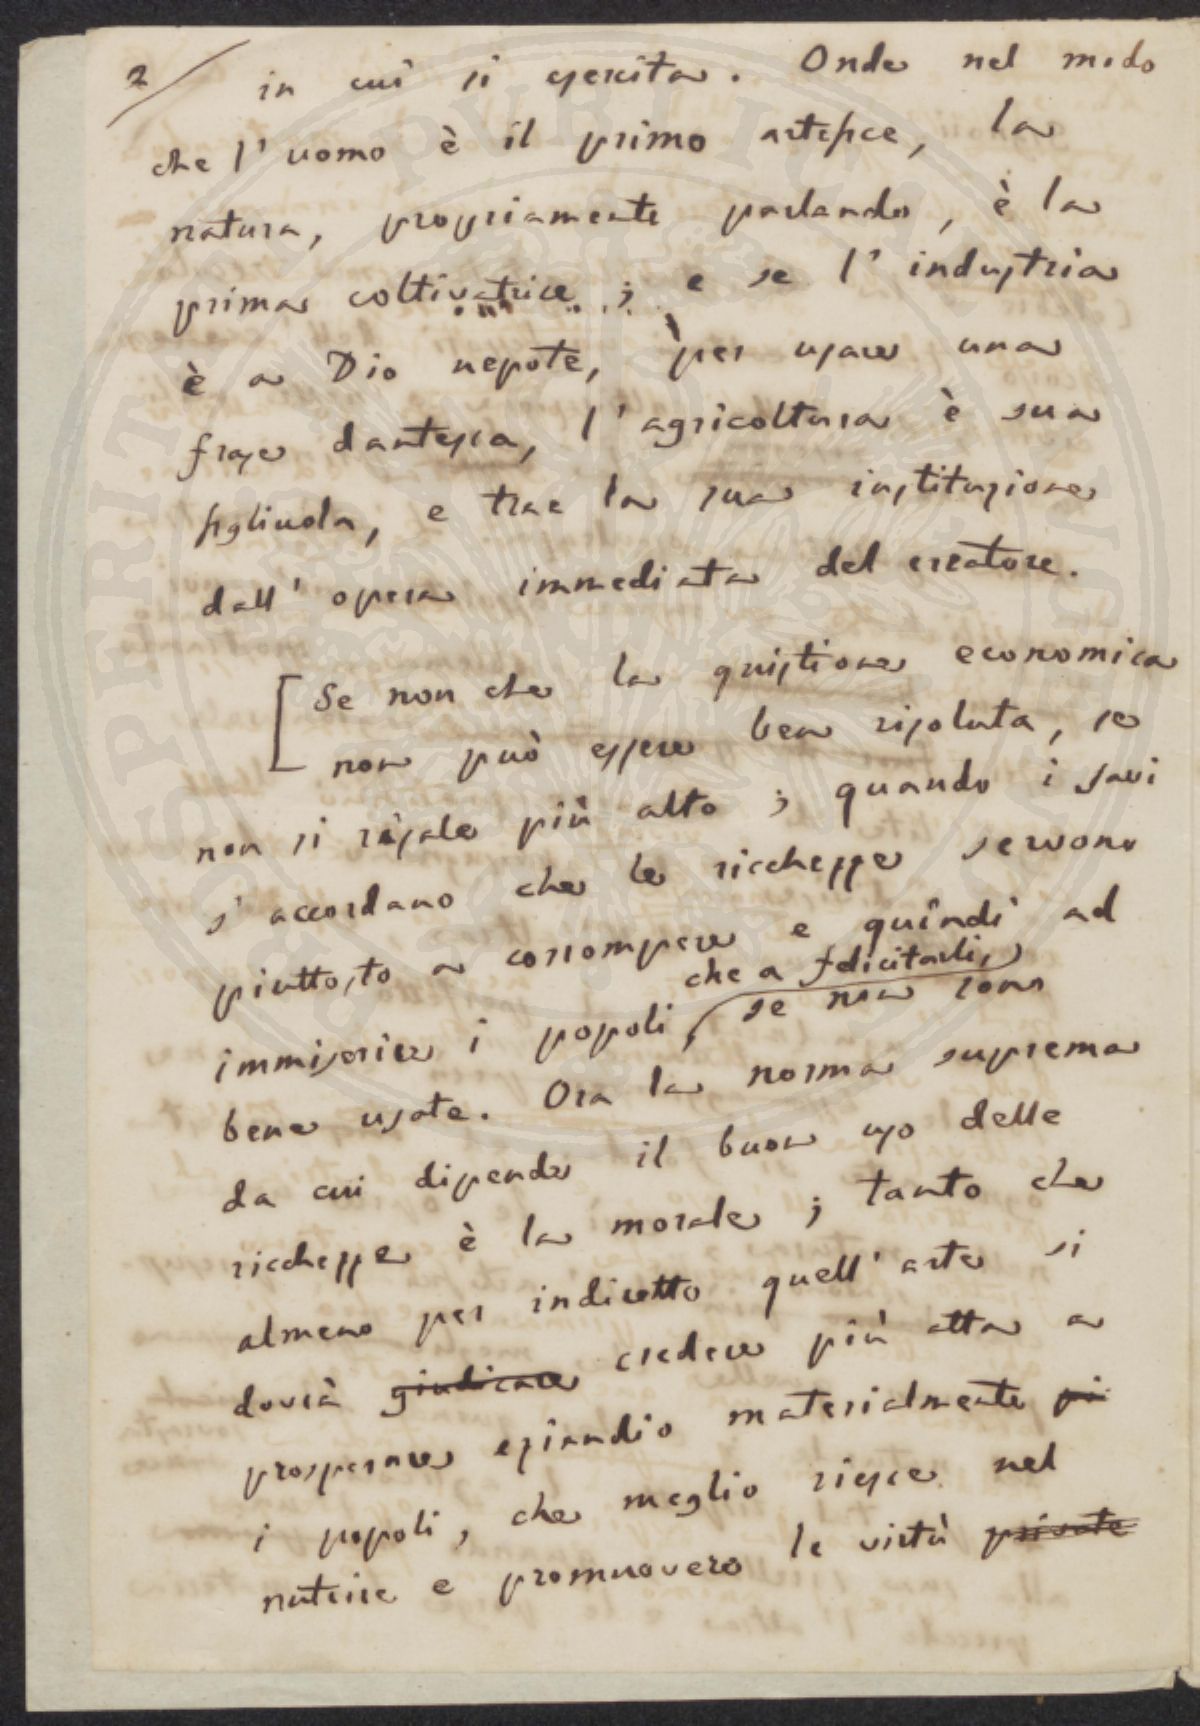 2/ in cui si esercita. Onde nel modo
che l'uomo è il primo artefice, la
natura, propriamente parlando, è la
prima coltivatrice; e se l'industria
è a Dio nepote, per usare una
frase dantesca, l'agricoltura è sua
figliuola, e trae la sua instituzione
dall'opera immediata del creatore.
[Se non che la quistione economica
non può essere ben risoluta, se
non si risale più alto; quando i savi
s'accordano che le ricchezze servono
piuttosto a corrompere e quindi ad
che a felicitarli,
immiserire i popoli, se non sono
bene usate. Ora la norma suprema
da cui dipende il buon uso delle
ricchezze è la morale; tanto che
almeno per indiretto quell'arte si
dovrà giudicare credere più atta a
prosperare eziandio materialmente pi
i popoli, che meglio riesce nel
nutrire e promuovere le virtù private